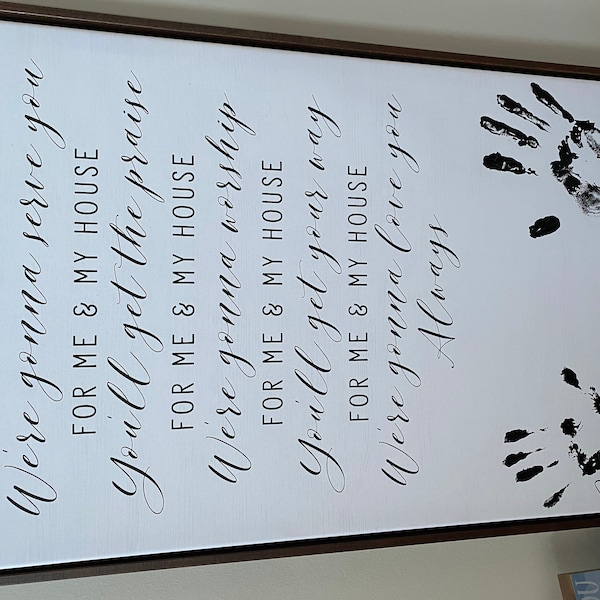 We're gonna serve you
FOR ME & MY HOUSE
You'll get the praise
FOR ME & MY HOUSE
We're gonna worship
FOR ME & MY HOUSE
You'll get your way
FOR ME & MY HOUSE
We're gonna love you
Always